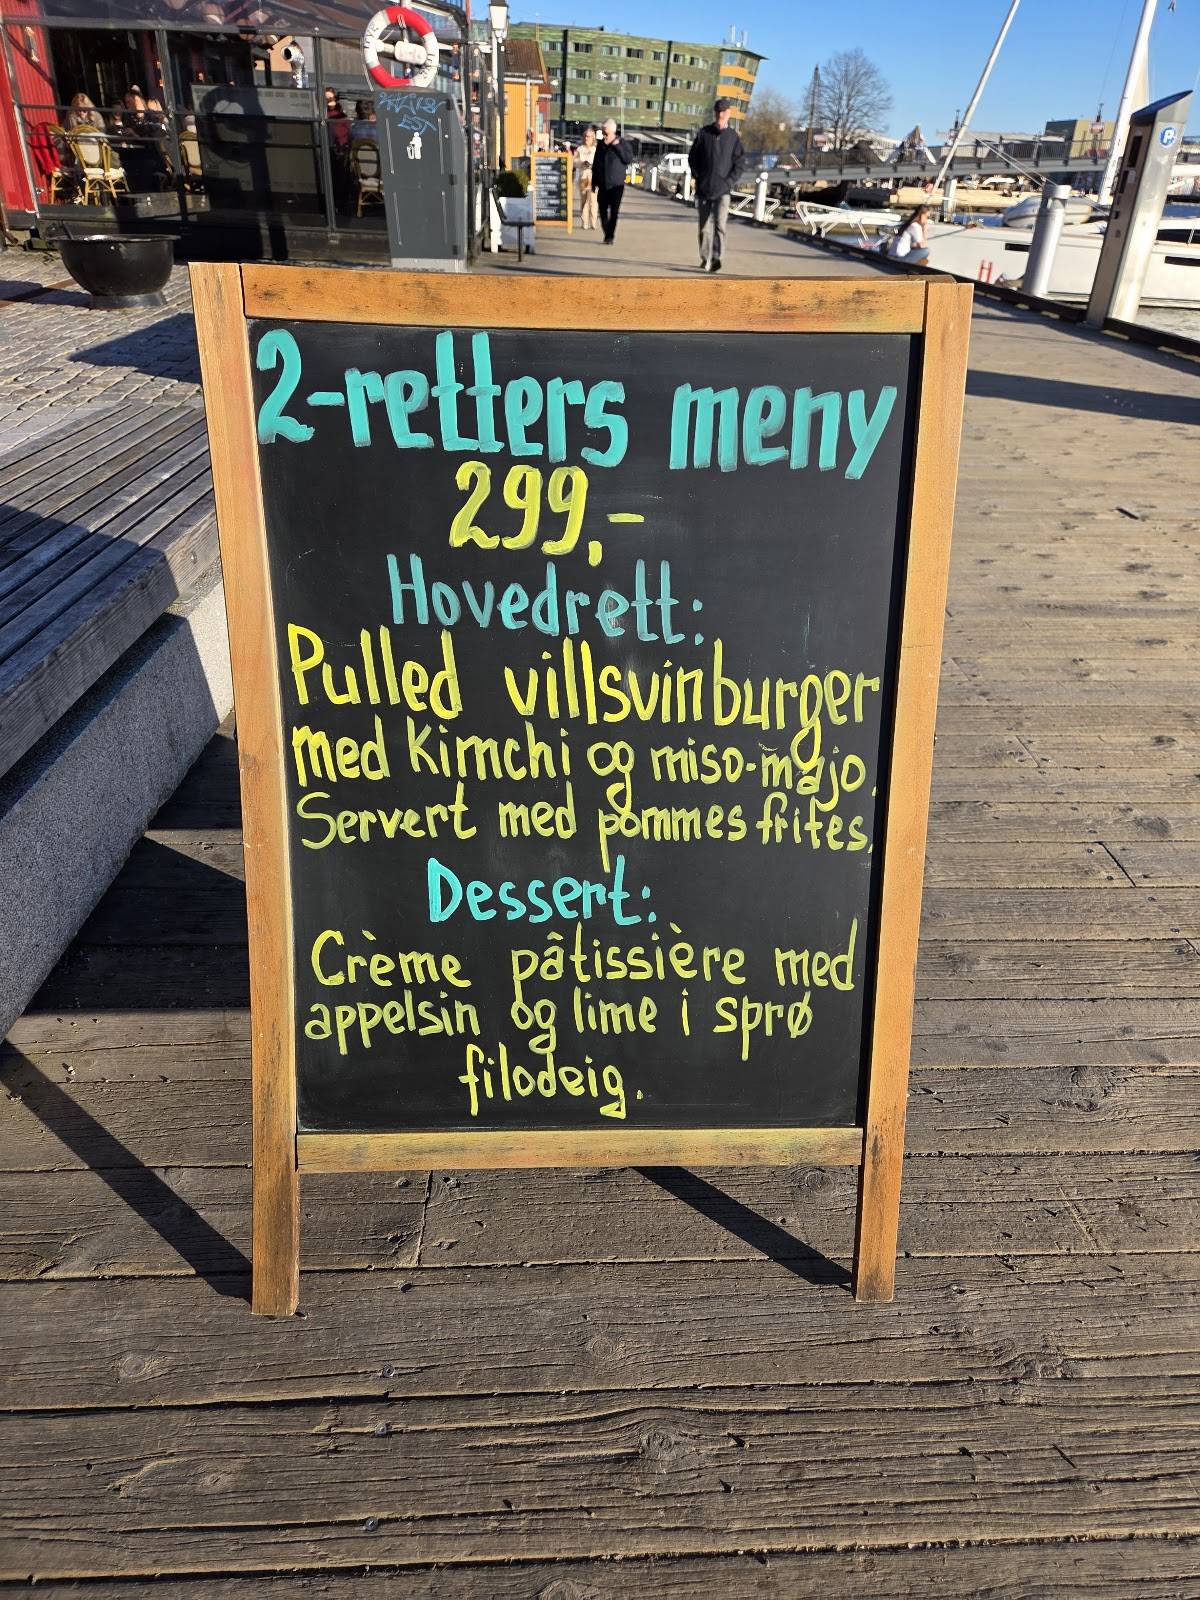 2-retters meny
299,-
Hovedrett:
Pulled villsvinburger
med kimchi og miso-majo.
Servert med pommes frites.
Dessert:
Crème pâtissière med
appelsin og lime i sprø
filodeig.
P